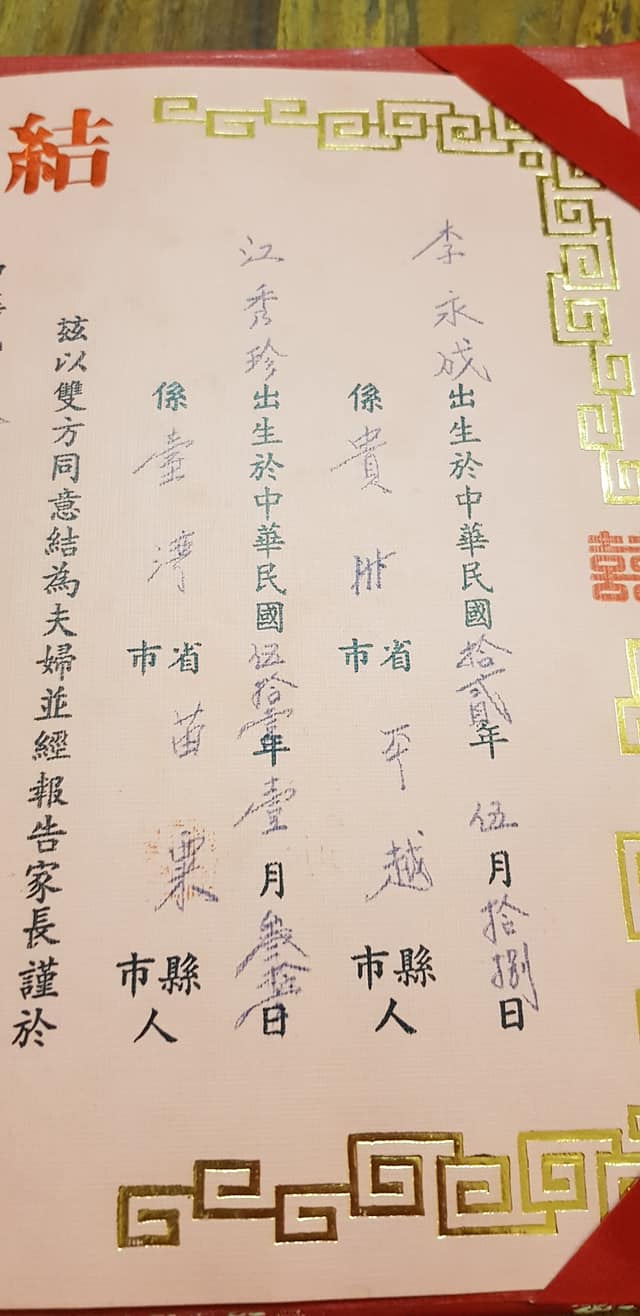 李永成出生於中華民國拾貳年伍月拾捌日
係貴州省市平越縣市人
江秀珍出生於中華民國伍拾壹年壹月叁拾日
係臺灣省市苗栗縣市人
結
茲以雙方同意結為夫婦並經報告家長謹於